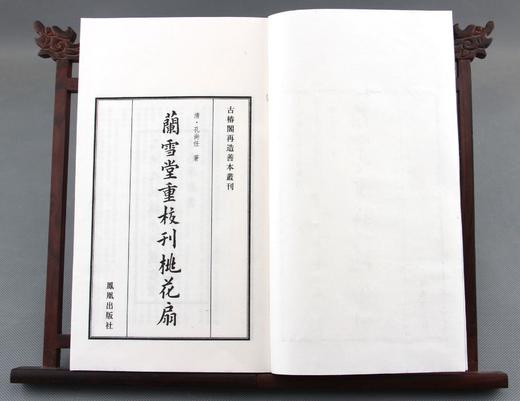 古椿閣再造善本叢刊
清·孔尚任 著
蘭雪堂重校刊桃花扇
鳳凰出版社